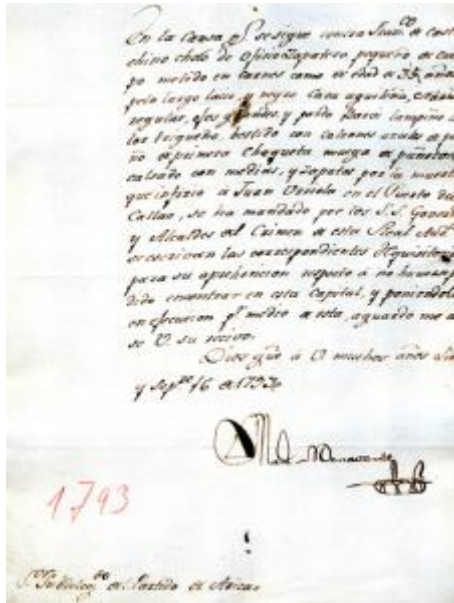 En la Causa q.e se sigue contra Juan de
chino cholo de oficio Zapatero pequeño de cuer
po metido en carnes como de edad de 35 años
pelo largo lacio y negro Cara aguileña,
regular, ojos grandes, y pardos Barci lampiño
lor trigueño, bestido con calzones azules de pa
ño de primera Chaqueta de
calzado con medias, y Zapatos por la muerte
que infirio a Juan en el Puerto del
Callao, se ha mandado por los S.S.
y Alcaldes del Crimen de esta Real Aud.
se escrivan las correspondientes Requisitorias
para su aprehencion respecto á no haverse po
dido encontrar en esta Capital, y poniendola
en efecucion p.r medio de esta, aguardo me a
se V. su recivo.
Dios gũe á V muchos años
y Sep.re 16 de 1793.
1793
S.or Subdeleg.do del Partido de Arica